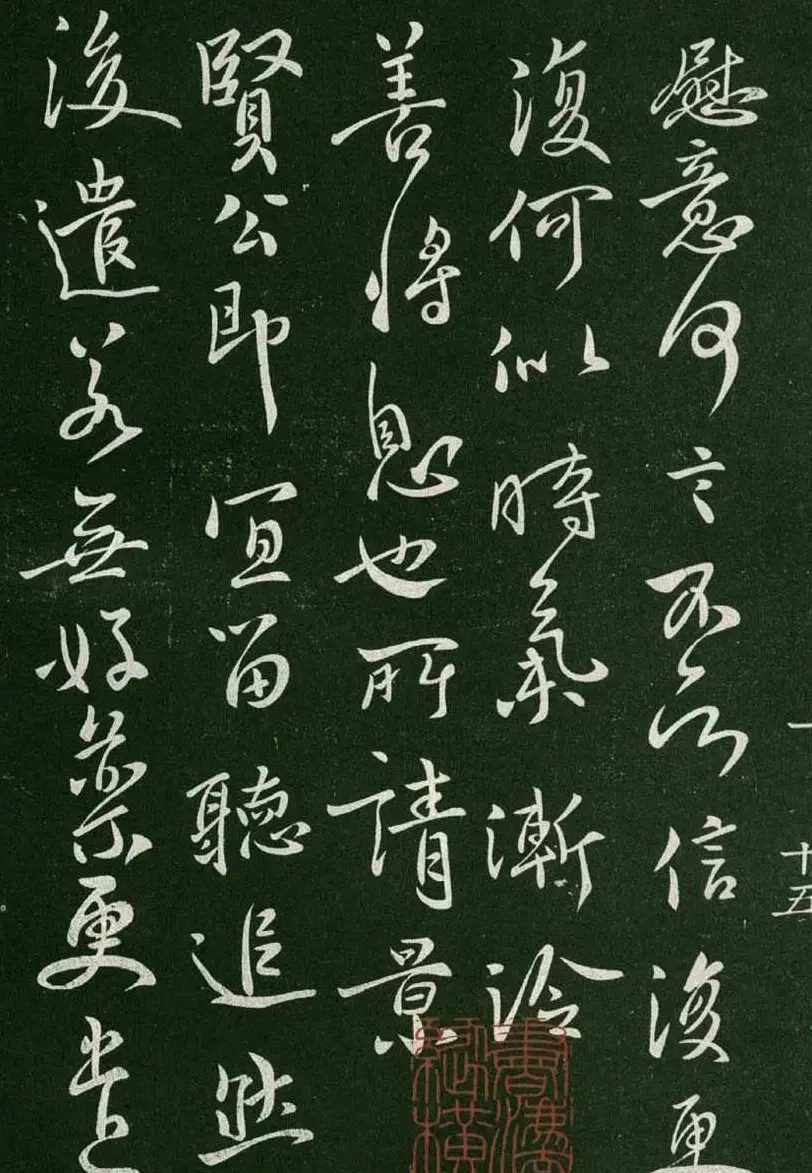 一 十五
慰意何言不信復更
復何似時氣漸冷
善將息也所請景
賢公即宜留聽追然
後遣若無好更